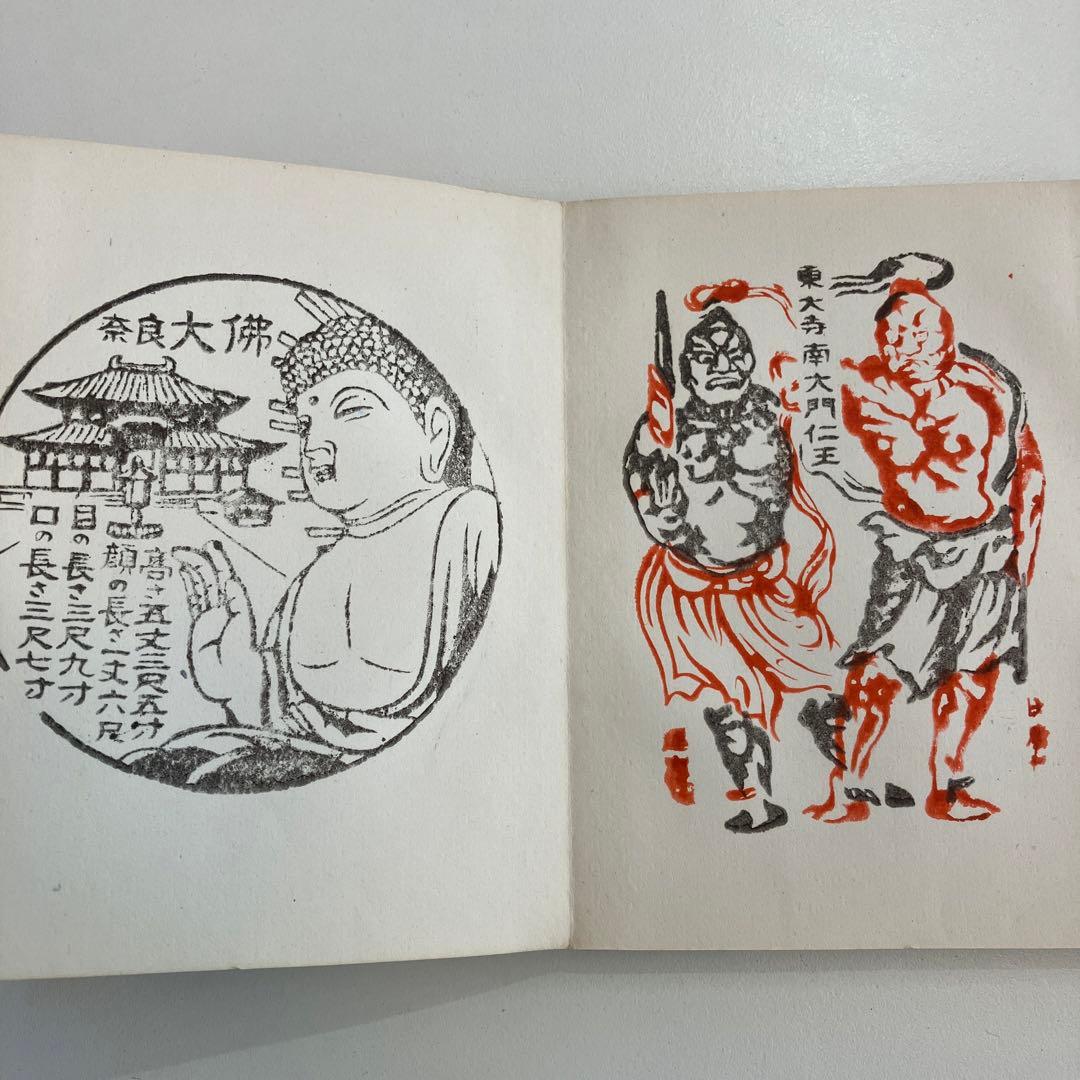 奈良大佛
高さ五丈三尺五寸
顔の長さ一丈六尺
目の長さ三尺九寸
口の長さ三尺七寸
東大寺南大門仁王